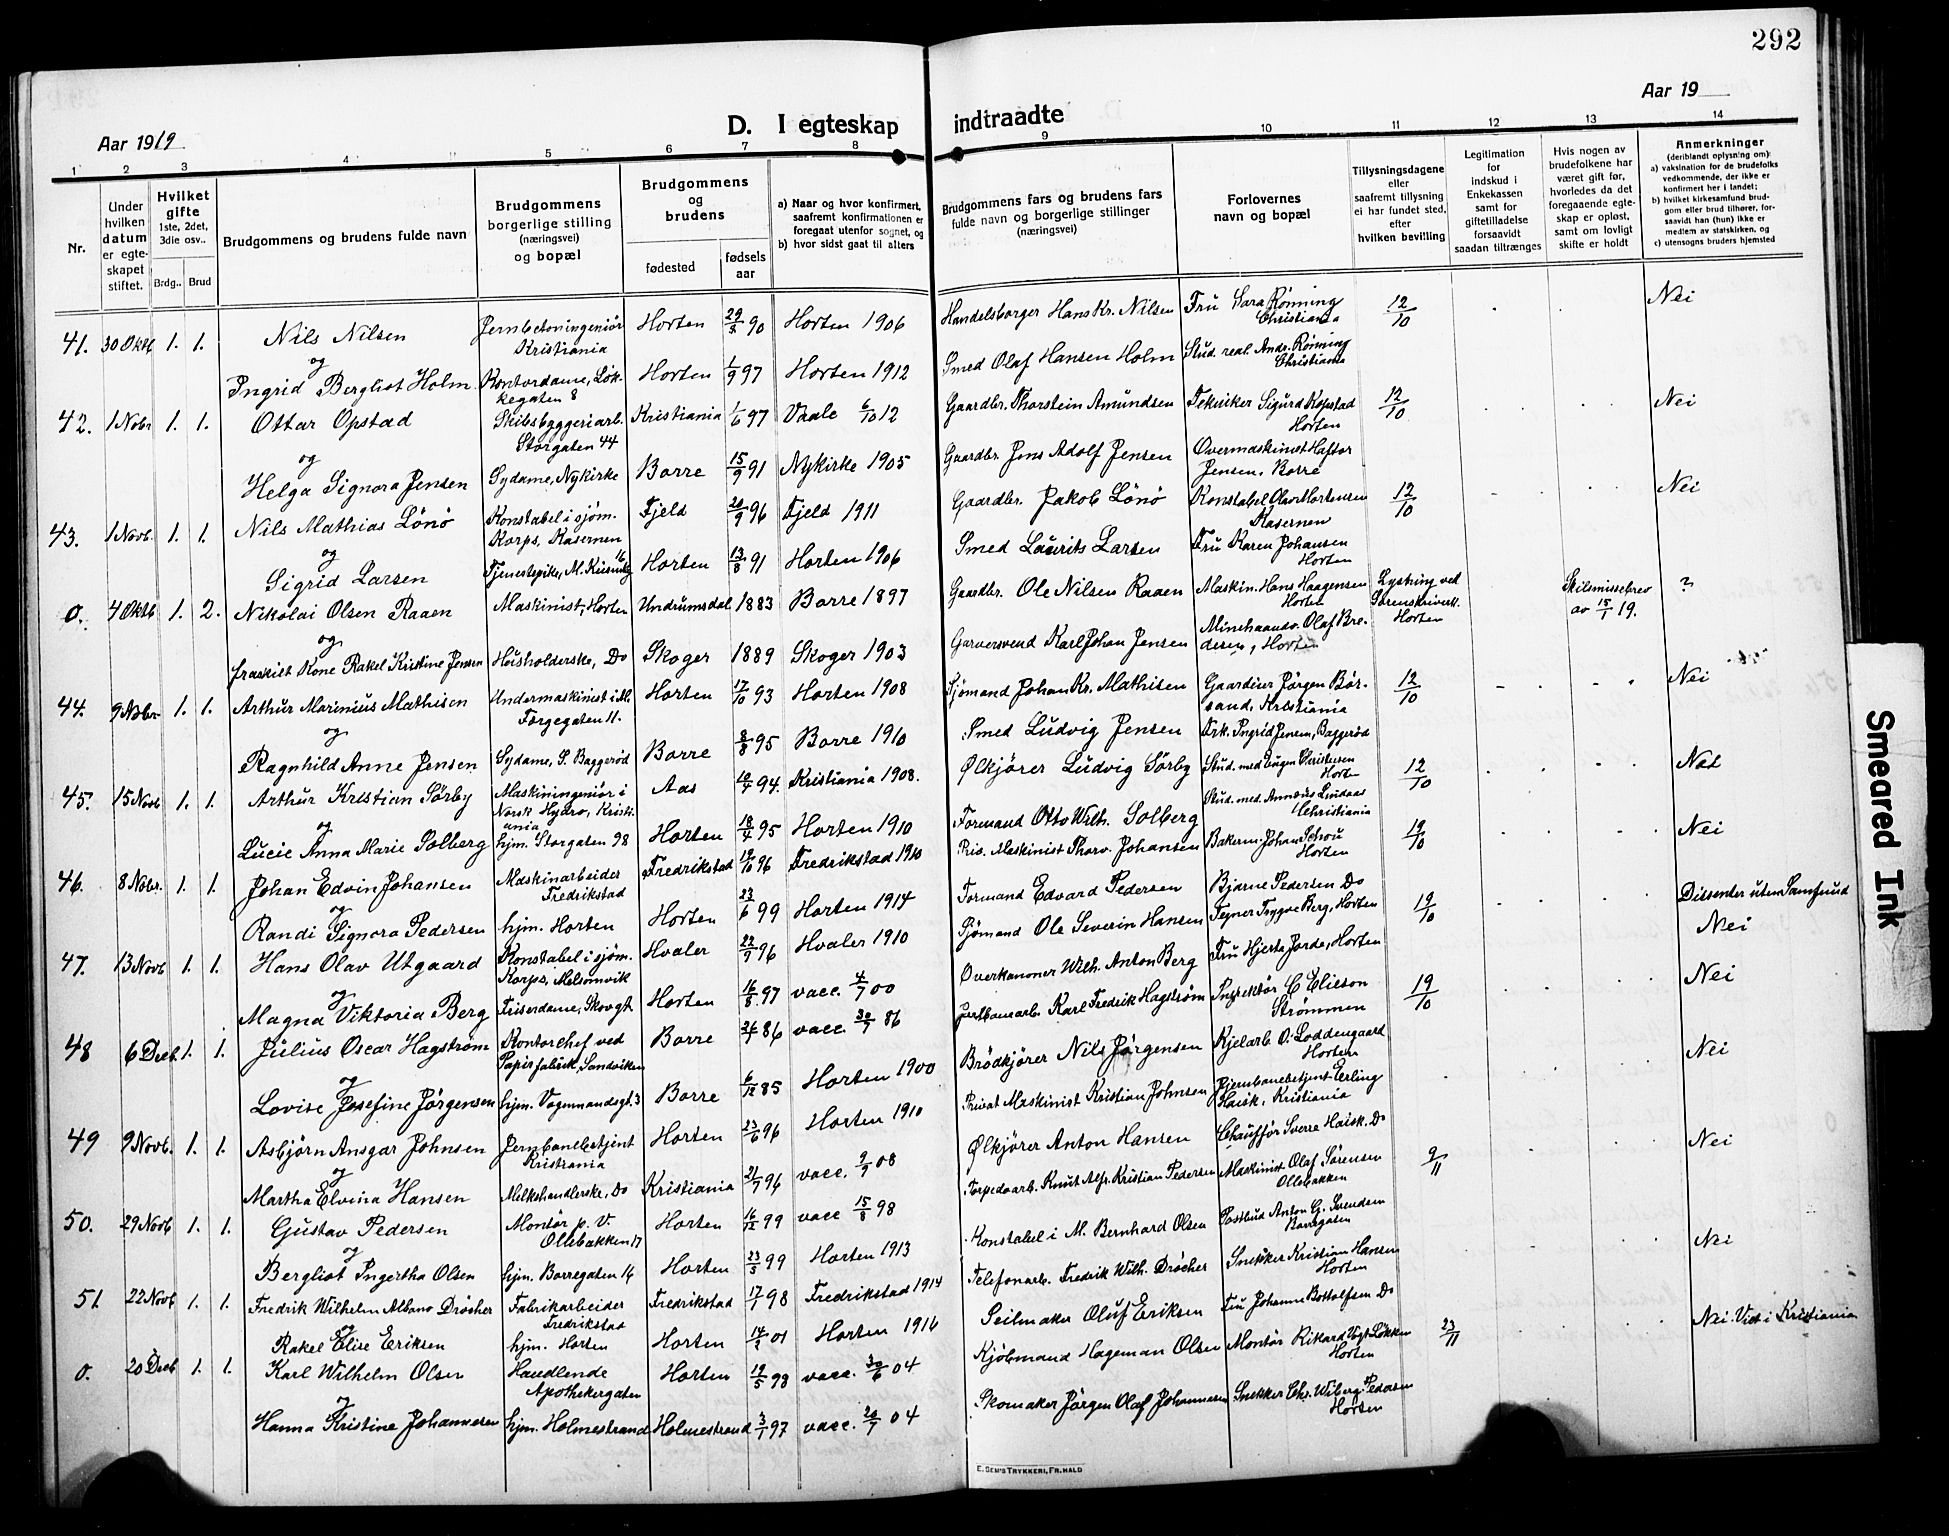 292
Aar 1919
D. I egteskap indtraadte
Aar 19
1 2 3 4 5 6 7 8 9 10 11 12 13 14
Nr.
Under hvilken datum er egte-skapet stiftet.
Hvilket gifte 1ste, 2det, 3die osv..
Brdg.. Brud
Brudgommens og brudens fulde navn
Brudgommens borgerlige stilling (næringsvei) og bopæl
Brudgommens og brudens
fødested
fødsels aar
a) Naar og hvor konfirmert, saafremt konfirmationen er foregaat utenfor sognet, og
b) hvor sidst gaat til alters
Brudgommens fars og brudens fars fulde navn og borgerlige stillinger (næringsvei)
Forlovernes navn og bopæl
Tillysningsdagene eller saafremt tillysning ei har fundet sted, efter hvilken bevilling
Legitimation for indskud i Enkekassen samt for giftetilladelse forsaavidt saadan tiltrænges
Hvis nogen av brudefolkene har været gift før, hvorledes da det foregaaende egte-skap er opløst, samt om lovligt skifte er holdt
Anmerkninger (deriblandt oplysning om):
a) vaksination for de brudefolks vedkommende, der ikke er konfirmert her i landet;
b) hvilket kirkesamfund brud-gom eller brud tilhører, for-saavidt han (hun) ikke er medlem av statskirken, og
c) utensogns bruders hjemsted
41. 30 Oktb 1. 1. Nils Nilsen Jernbetoningeniør Kristiania Horten 29/5 90 Horten 1906 Handelsborger Hans Kr. Nilsen Fru Sara Rønning Christiania 12/10 Nei
og
Ingrid Bergliot Holm Kontordame, Løk-kegaten 8 Horten 1/9 97 Horten 1912 Smed Olaf Hansen Holm Stud. real. Andr. Rønning Christiania
42. 1 Nobr 1. 1. Ottar Opstad Skibsbyggeriarb. Storgaten 44 Kristiania 1/6 97 Vaale 6/10 12 Gaardbr. Thorstein Amundsen Tekniker Sigurd Kopstad Horten 12/10 Nei
og
Helga Signora Jensen Sydame, Nykirke Borre 15/9 91 Nykirke 1905 Gaardbr. Jens Adolf Jensen Overmaskinist Haftor Jensen, Borre
43. 1 Novb. 1. 1. Nils Mathias Lönö Konstabel i sjøm. Korps, Kasernen Fjeld 20/9 96 Fjeld 1911 Gaardbr. Jakob Lönö Konstabel Olav Mortensen Kasernen 12/10 Nei
og
Sigrid Larsen Tjenestepike, Horten 13/8 91 Horten 1906 Smed Laurits Larsen Fru Karen Johansen Horten
0. 4 Oktb 1. 2. Nikolai Olsen Raaen Maskinist, Horten Undrumsdal 1883 Borre 1897 Gaardbr. Ole Nilsen Raaen Maskin. Hans Haagensen Horten Lysning ved Sorenskriveren Horten Skilsmissebrev av 15/1 19. ?
og
fraskilt Kone Rakel Kristine Jensen Husholderske, Do Skoger 1889 Skoger 1903 Garversvend Karl Johan Jensen Minehaandv. Olaf Bre-desen, Horten
44. 9 Nobr 1. 1. Arthur Marinius Mathisen Undermaskinist i M. Færgegaten 11. Horten 17/10 93 Horten 1908 Sjømand Johan Kr. Mathisen Gaardeier Jørgen Bør-sand, Kristiania 12/10 Nei
og
Ragnhild Anne Jensen Sydame, S. Baggerød Borre 8/8 95 Borre 1910 Smed Ludvig Jensen Frk. Ingrid Jensen, Baggerød
45. 15 Novb 1. 1. Arthur Kristian Sørby Maskiningeniør i Norsk Hydro, Kristi-ania Aas 10/4 94. Kristiania 1908. Ølkjører Ludvig Sørby Stud. med Eugen Horten 12/10 Nei
og
Lucie Anna Marie Solberg hjm. Storgaten 98 Horten 18/4 95 Horten 1910 Formand Otto Wilh. Solberg Stud. med. Annæus Lindaas Christiania
46. 8 Nobr. 1. 1. Johan Edvin Johansen Maskinarbeider Fredrikstad Fredrikstad 19/10 96 Fredrikstad 1910 Priv. Maskinist Thorv. Johansen Bakerm Johan Schou Horten 19/10 Nei
og
Randi Signora Pedersen hjm. Horten Horten 23/6 99 Horten 1914 Formand Edvard Pedersen Bjarne Pedersen Do Dissenter uten Samfund
47. 13 Novb 1. 1. Hans Olav Utgaard Konstabel i sjøm. Korps, Melsomvik Hvaler 22/9 96 Hvaler 1910 Sjømand Ole Severin Hansen Tegner Trygve Berg, Horten 19/10 Nei
og
Magna Viktoria Berg Friserdame, Skovgt Horten 16/8 97 vacc. 4/7 00 Overkanoner Wilh. Anton Berg Fru Hjerta Jorde, Horten
48 6 Decb. 1. 1. Julius Oscar Hagstrøm Kontorchef ved Papirfabrik, Sandviken Borre 86 vacc. 30/7 86 Jernbanearb. Karl Fredrik Hagstrøm Inspektør C Elieson Strømmen 19/10 Nei
og
Lovise Josefine Jørgensen hjm. Vognmandsgt. 3 Borre 6/12 85 Horten 1900 Brødkjører Nils Jørgensen Kjelarb O. Loddengaard Horten
49 9 Novb. 1. 1. Asbjørn Ansgar Johnsen Jernbanebetjent Kristiania Horten 23/6 96 Horten 1910 Privat Maskinist Kristian Johnsen Jernbanebetjent Erling Haisk, Kristiania Nei
og
Martha Elvina Hansen Melkehandlerske, Do Kristiania 21/7 96 vacc. 9/9 08 Ølkjører Anton Hansen Chauffør Sverre Haisk. Do
50. 29 Novb 1. 1. Gustav Pedersen Montør p. V. Ollebakken 17 Horten 16/12 99 vacc 15/8 98 Torpedoarb. Knut Alfr. Kristian Pedersen Maskinist Olaf Sørensen Ollebakken 9/11 Nei
og
Bergliot Ingertha Olsen hjm. Borregaten 16 Horten 23/5 99 Horten 1913 Konstabel i M. Bernhard Olsen Postbud Anton G. Svendsen Borregaten
51. 22 Novb 1. 1. Fredrik Wilhelm Albano Drøcher Fabrikarbeider Fredrikstad Fredrikstad 17/1 98 Fredrikstad 1914 Telefonarb. Fredrik Wilh. Drøcher Snekker Kristian Hansen Horten Nei
og
Rakel Elise Eriksen hjm. Horten Horten 14/2 01 Horten 1916 Seilmaker Oluf Eriksen Fru Johanne Bottolfsen Do
0. 20 Decb 1. 1. Karl Wilhelm Olsen Handlende Apothekergaten Horten 19/5 98 vacc. 30/6 04 Kjøbmand Hageman Olsen Montør Rikard Vogt Løkken Horten 23/11 Nei. Viet i Kristiania
og
Hanna Kristine Johannesen hjm. Holmestrand Holmestrand 3/1 97 vacc. 20/7 04 Skomaker Jørgen Olaf Johannesen Snekker Chr. Wiborg Pedersen Horten
E. SEM'S TRYKKERI, FR.HALD
Smeared Ink